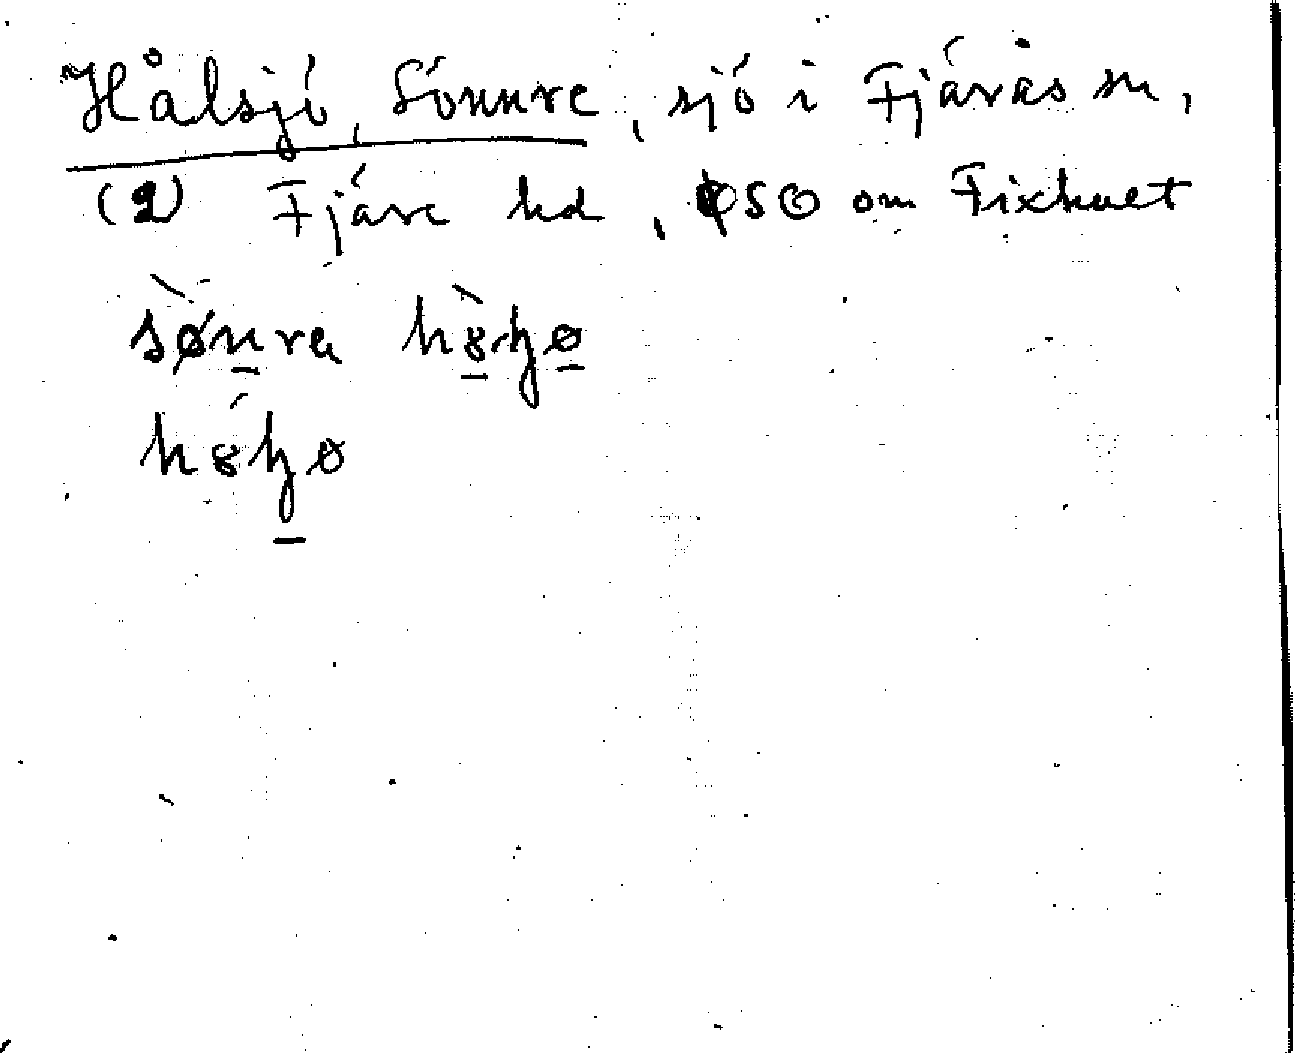 Hålsjö, Sönnre, sjö i Fjärås sn,
(2) Fjäre hd, SO om Fixhuet
sønra